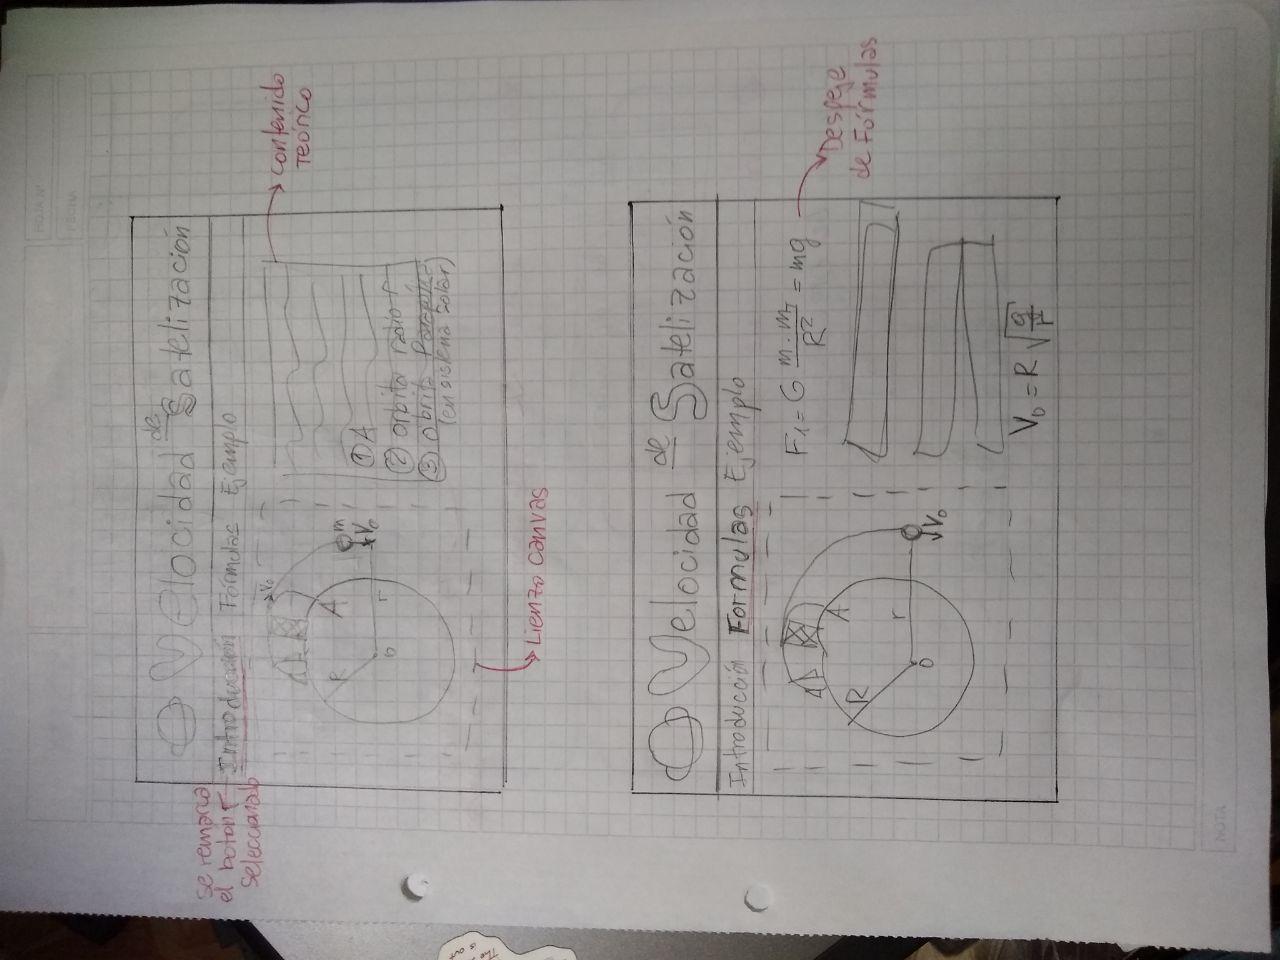 HOJA Nº
FECHA
Velocidad de Satelización
se remarca
el boton
seleccionado
Introducción Fórmulas Ejemplo
contenido
Teórico
V₀
R
A
m
V₀
0
r
① A
② orbita radio r
③
(en sistema solar)
Lienzo canvas
Velocidad de Satelización
Introducción Formulas Ejemplo
F₁ = G m . m_T / R² = mg
A
R
Despeje
de Fórmulas
r
0
V₀
V₀ = R √(g/r)
NOTA